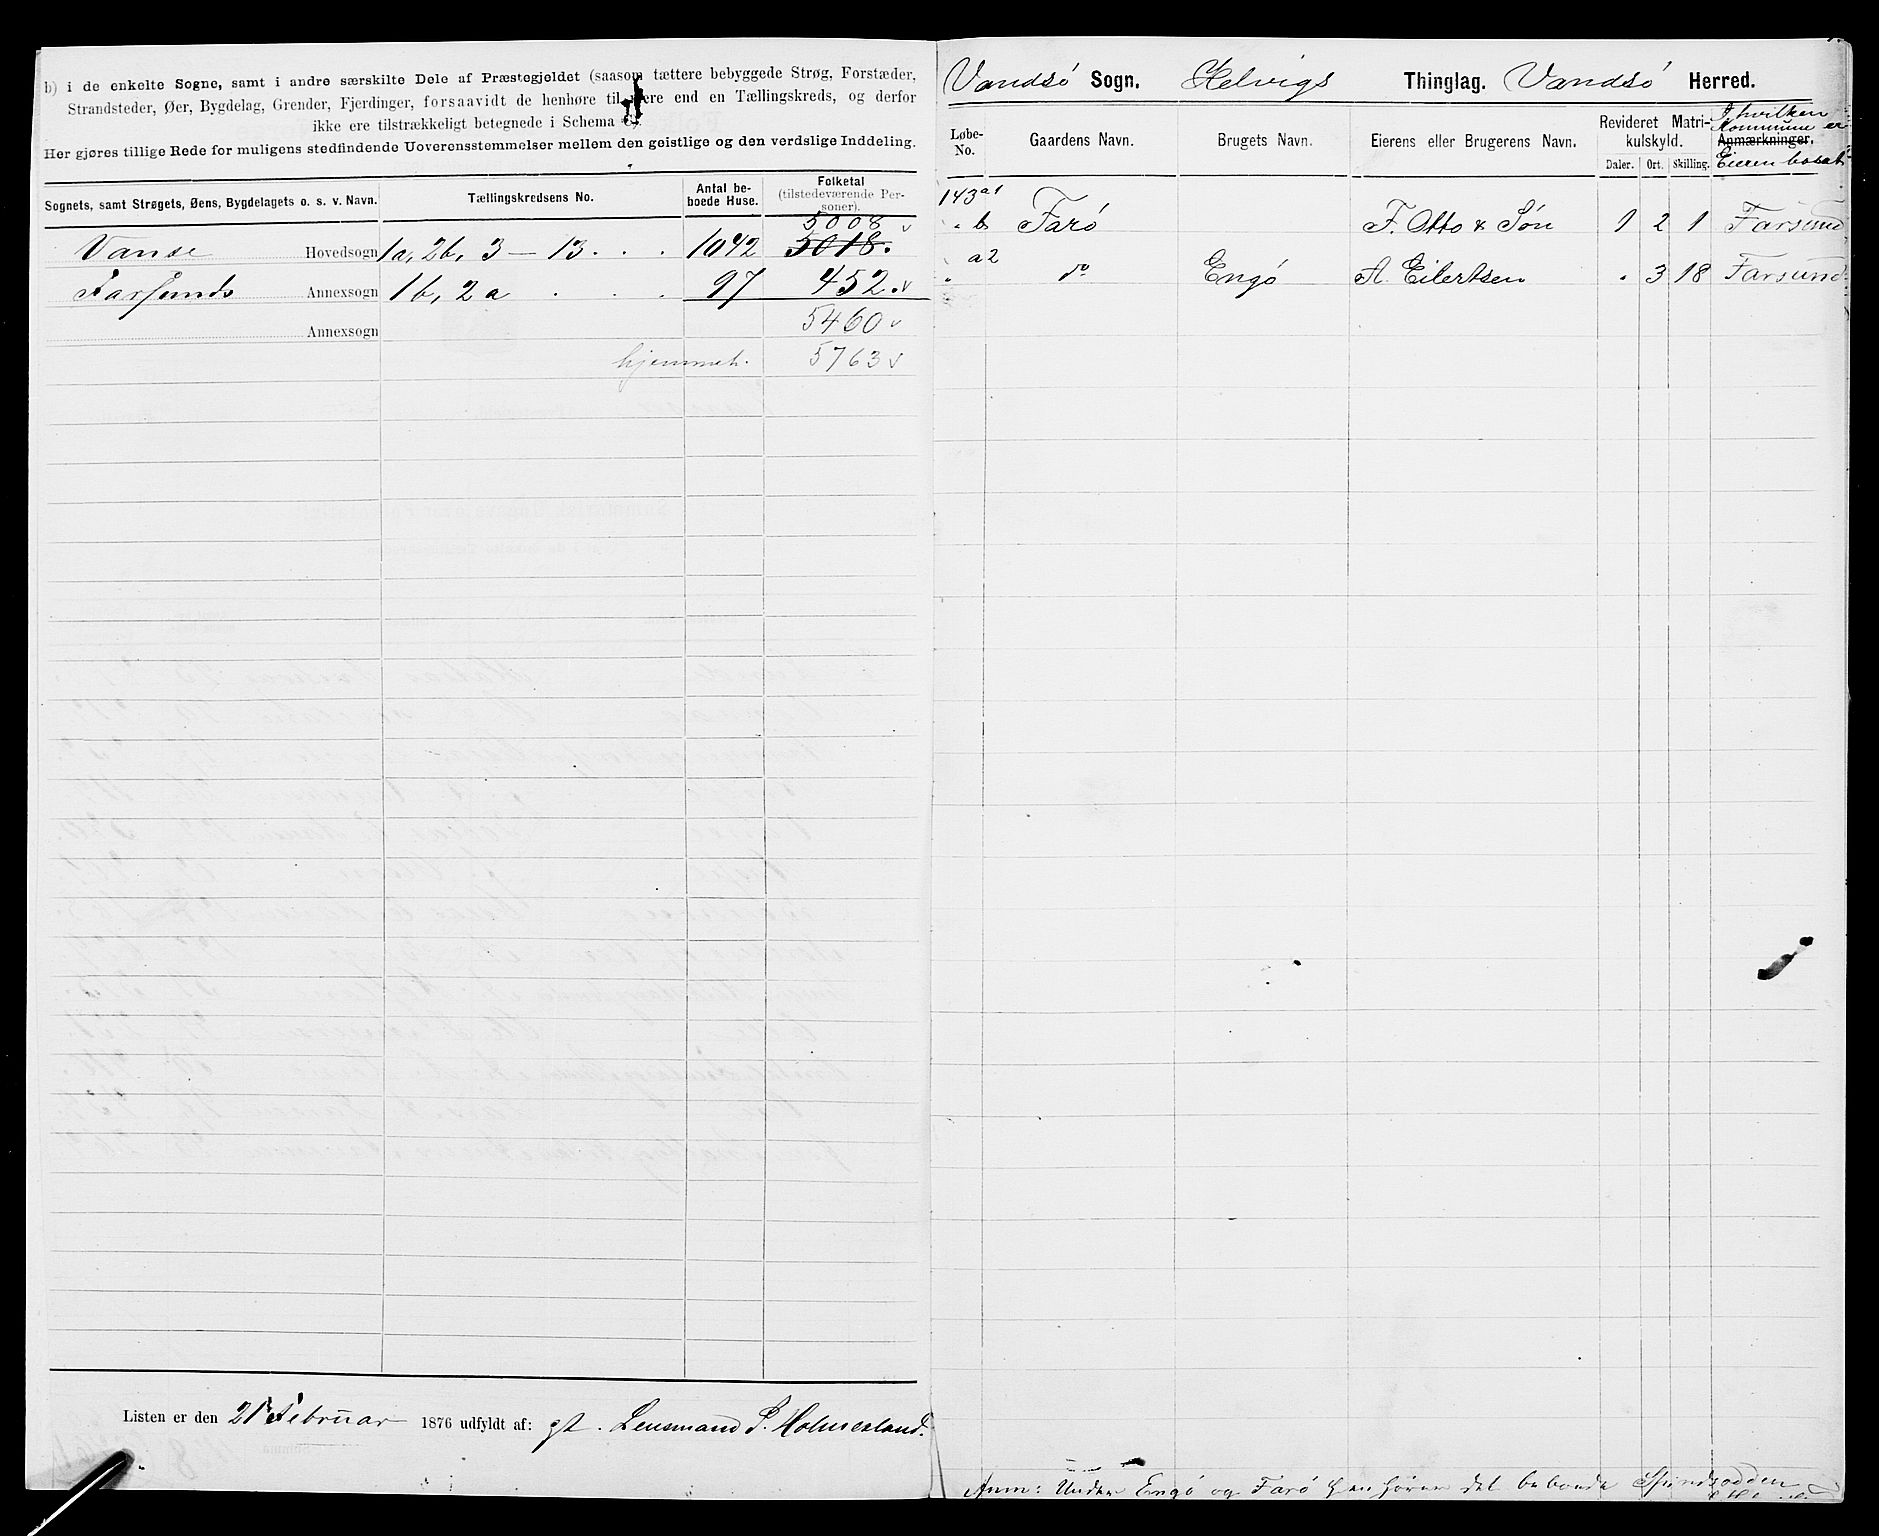 b) i de enkelte Sogne, samt i andre særskilte Dele af Præstegjeldet (saasom tættere bebyggede Strøg, Forstæder,
Strandsteder, Øer, Bygdelag, Grender, Fjerdinger, forsaavidt de henhøre til mere end en Tællingskreds, og derfor
ikke ere tilstrækkeligt betegnede i Schema C).
Her gjøres tillige Rede for muligens stedfindende Uoverensstemmelser mellem den geistlige og den verdslige Inddeling.
Sognets, samt Strøgets, Øens, Bygdelagets o. s. v. Navn. Tællingskredsens No. Antal beboede Huse. Folketal (tilstedeværende Personer).
5008
Vanse Hovedsogn 1a, 2b, 3 — 13 . . . 1042 5018.
Farsunds Annexsogn 1b, 2a . . . 97 452.
Annexsogn 5460
hjemmeh. 5763
Listen er den 21 Februar 1876 udfyldt af: gst. Lensmand S. Holmesland.
Vandsö Sogn. Helvigs Thinglag. Vandsö Herred.
Løbe-No. Gaardens Navn. Brugets Navn. Eierens eller Brugerens Navn. Revideret Matrikulskyld. Daler. Ort. Skilling. Anmærkninger.
I hvilken
Kommune er
Eieren bosat
143 a1
" b Farö F. Otto & Sön 1 2 1 Farsund
" a2 do Engö A. Eilertsen " 3 18 Farsund
Anm: Under Engö og Farö henhörer det beboede Spindsodden